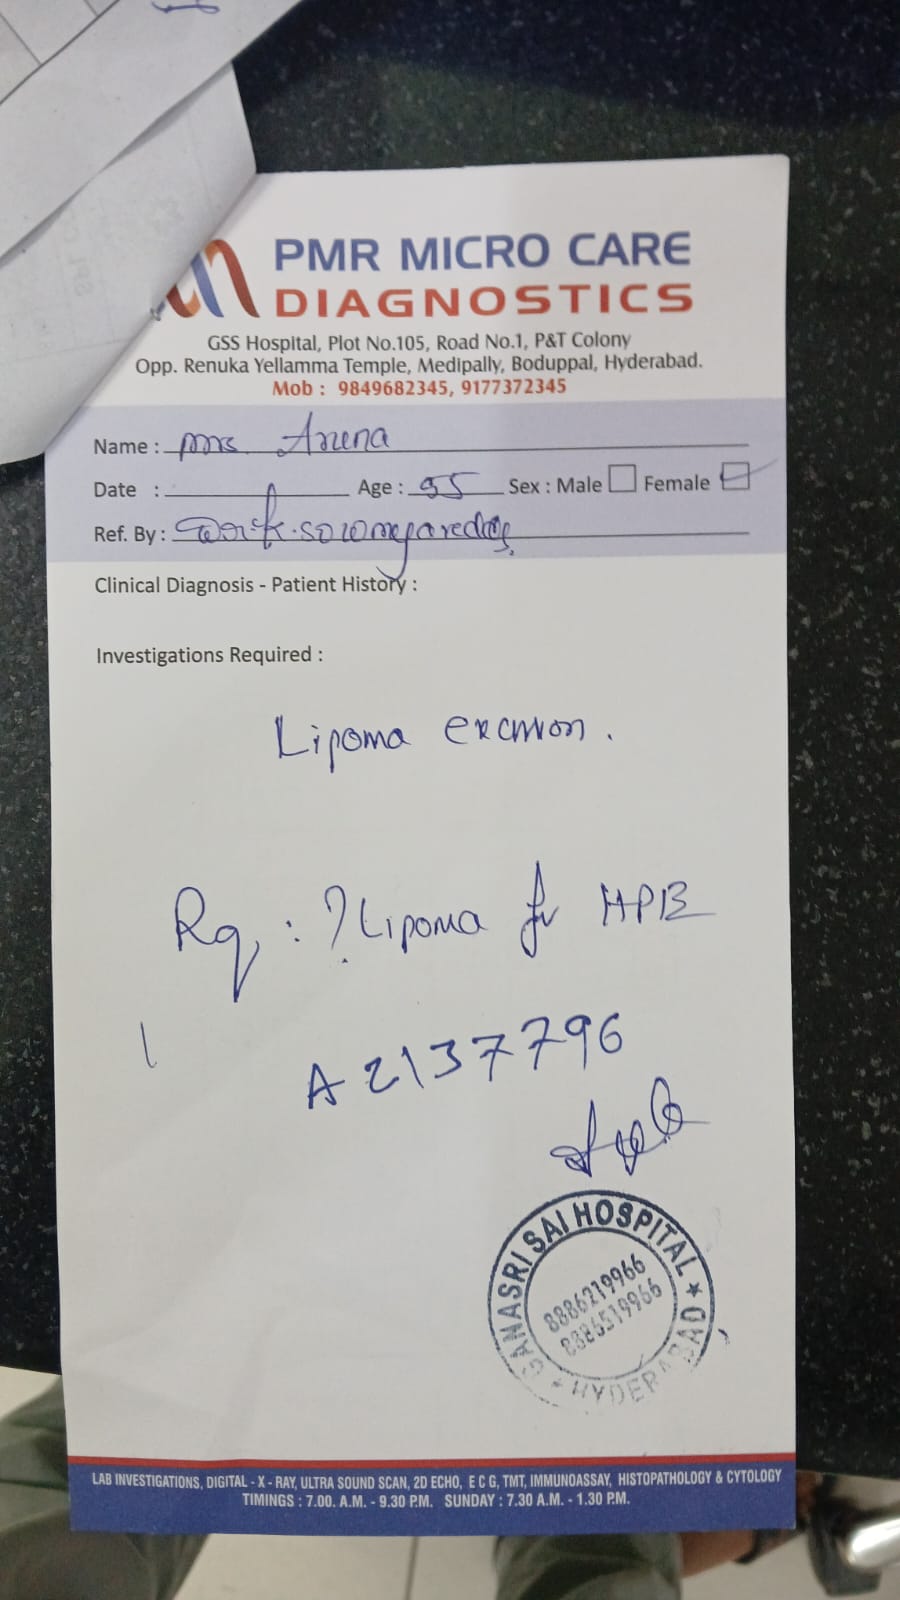 PMR MICRO CARE
DIAGNOSTICS
GSS Hospital, Plot No.105, Road No.1, P&T Colony
Opp. Renuka Yellamma Temple, Medipally, Boduppal, Hyderabad.
Mob : 9849682345, 9177372345
Name : Mrs. Aruna
Date : Age : 55 Sex : Male Female
Ref. By :
Clinical Diagnosis - Patient History :
Investigations Required :
Lipoma excision.
Rq : ? Lipoma for HPE
A2137796
GANASRI SAI HOSPITAL ★ HYDERABAD ★
8886219966
8886519966
LAB INVESTIGATIONS, DIGITAL - X - RAY, ULTRA SOUND SCAN, 2D ECHO, E C G, TMT, IMMUNOASSAY, HISTOPATHOLOGY & CYTOLOGY
TIMINGS : 7.00. A.M. - 9.30 P.M. SUNDAY : 7.30 A.M. - 1.30 P.M.